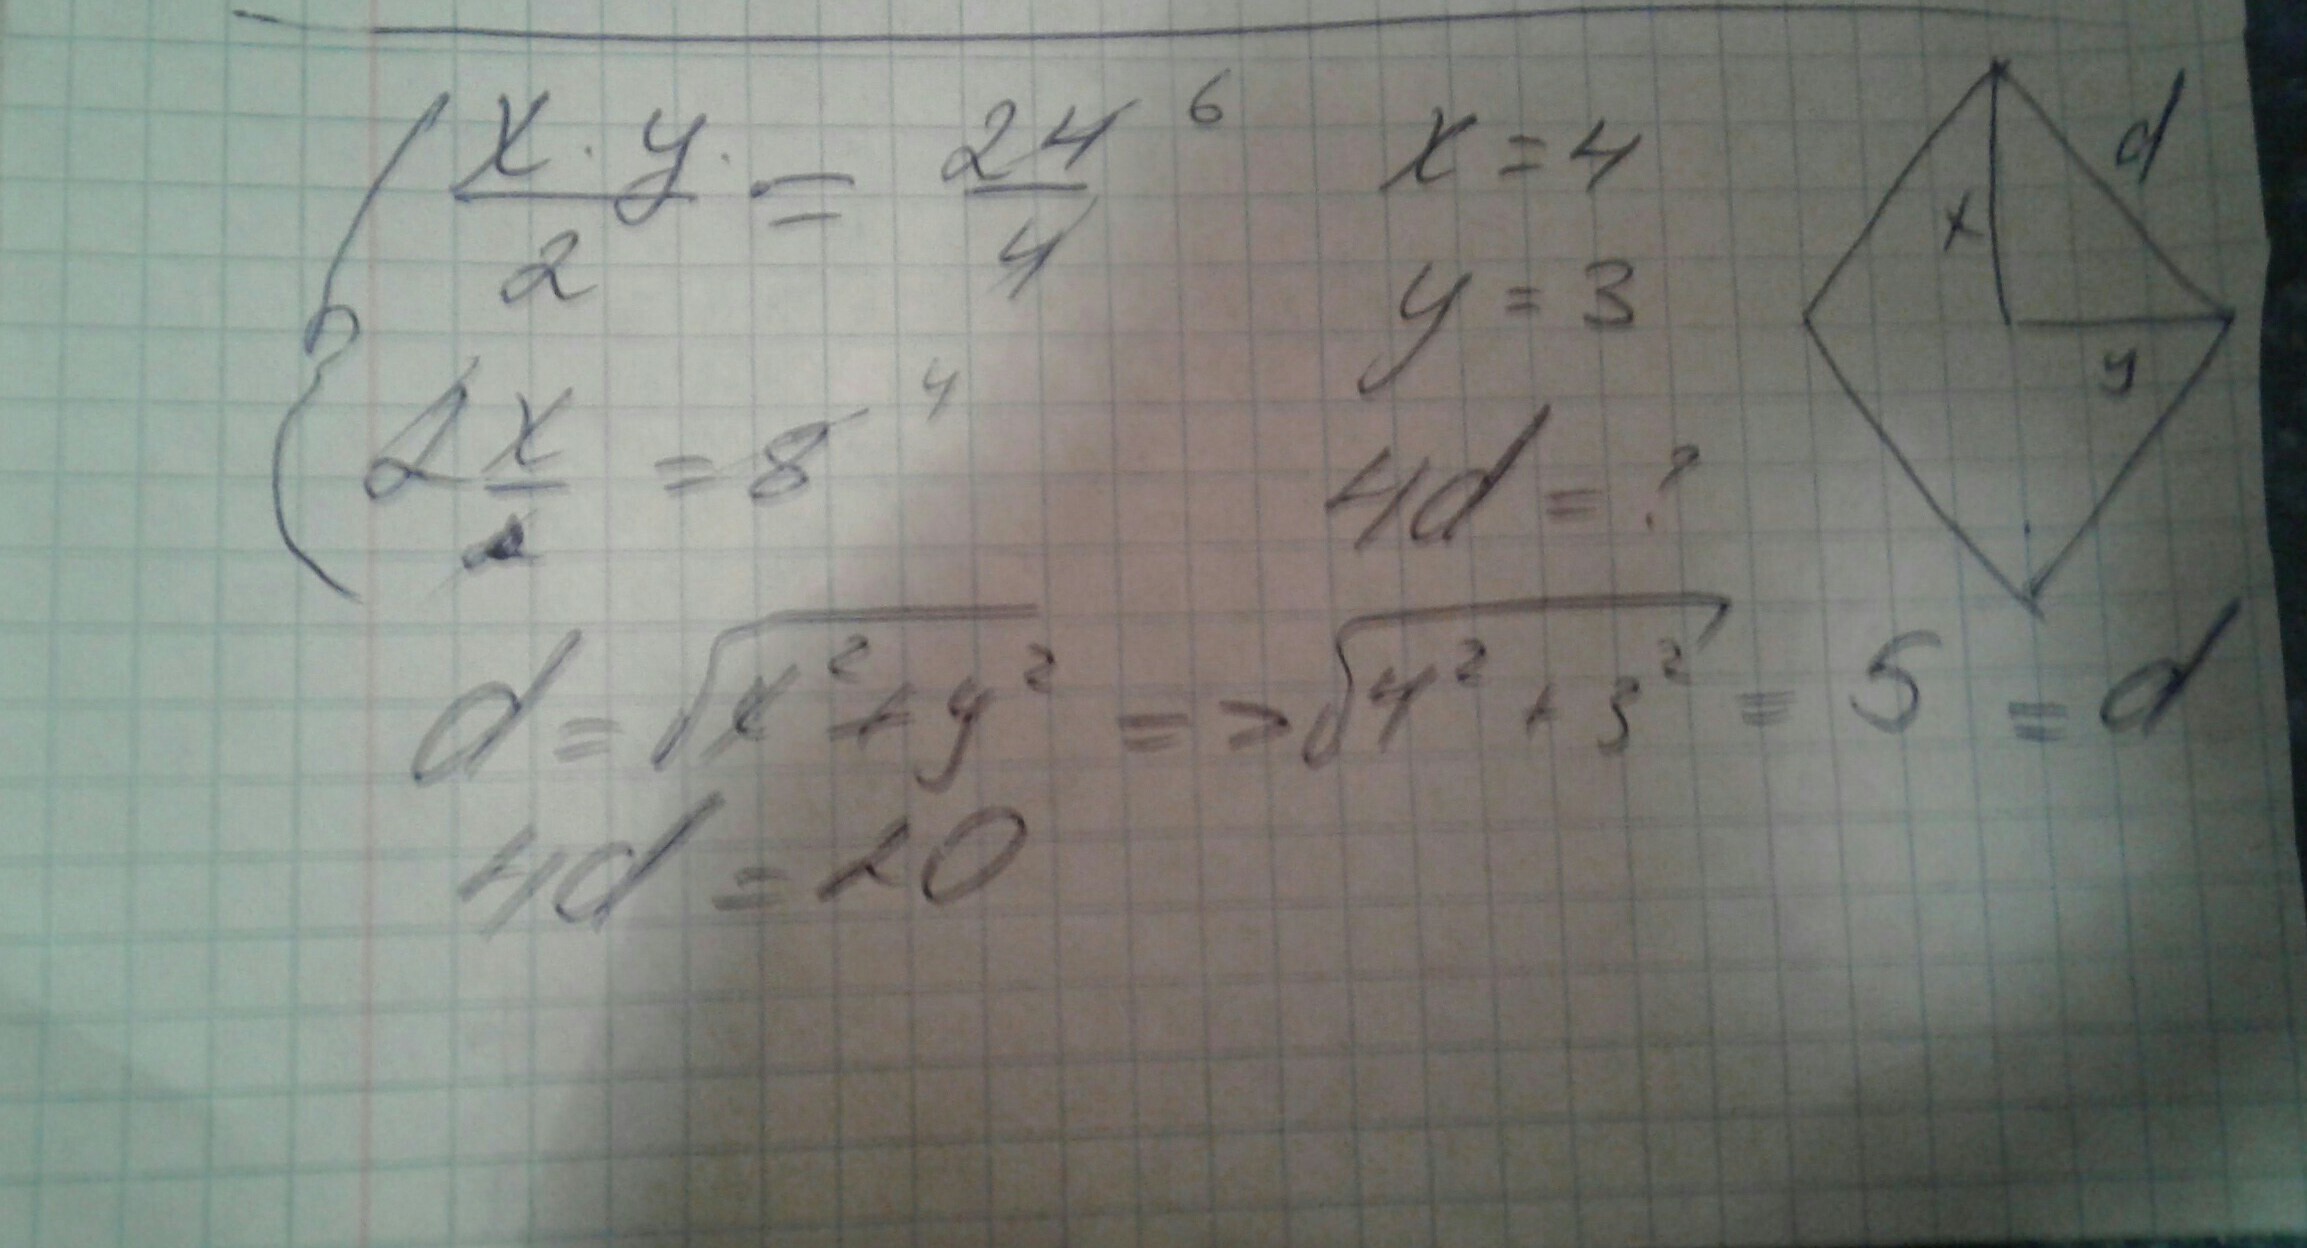 x · y / 2 = 24 / 4 6
2x = 8 4
x = 4
y = 3
4d = ?
d
x
y
d = √x² + y² => √4² + 3² = 5 = d
4d = 20